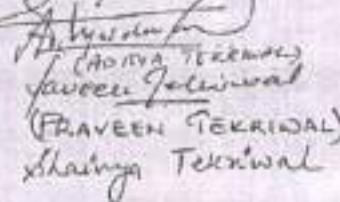 (ADITYA TEKRIWAL)
Praveen Tekriwal
(PRAVEEN TEKRIWAL)
Shainya Tekriwal